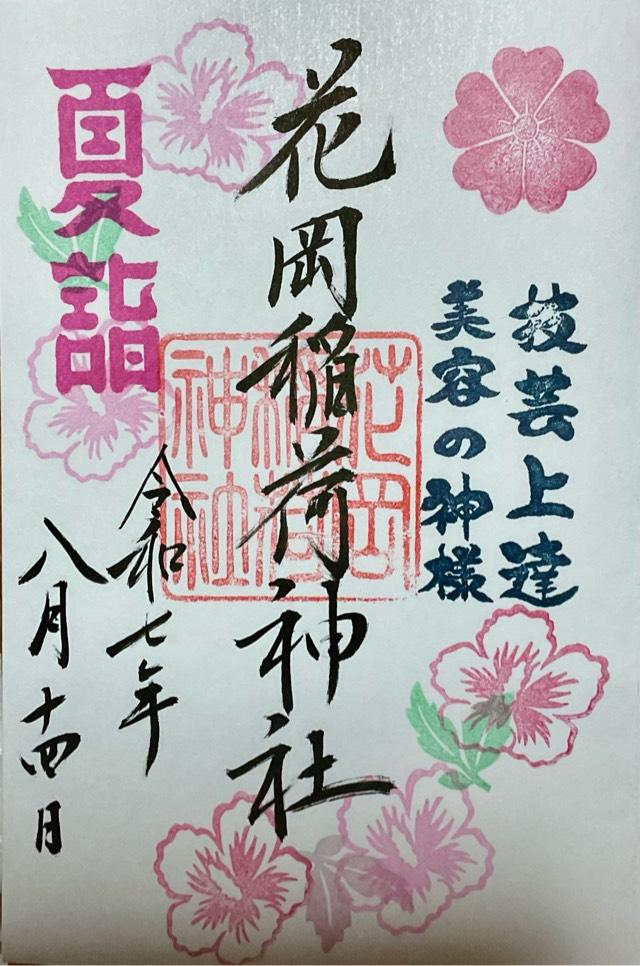 技芸上達
美容の神様
花岡稲荷神社
花岡
稲荷
神社
夏詣
令和七年
八月十四日